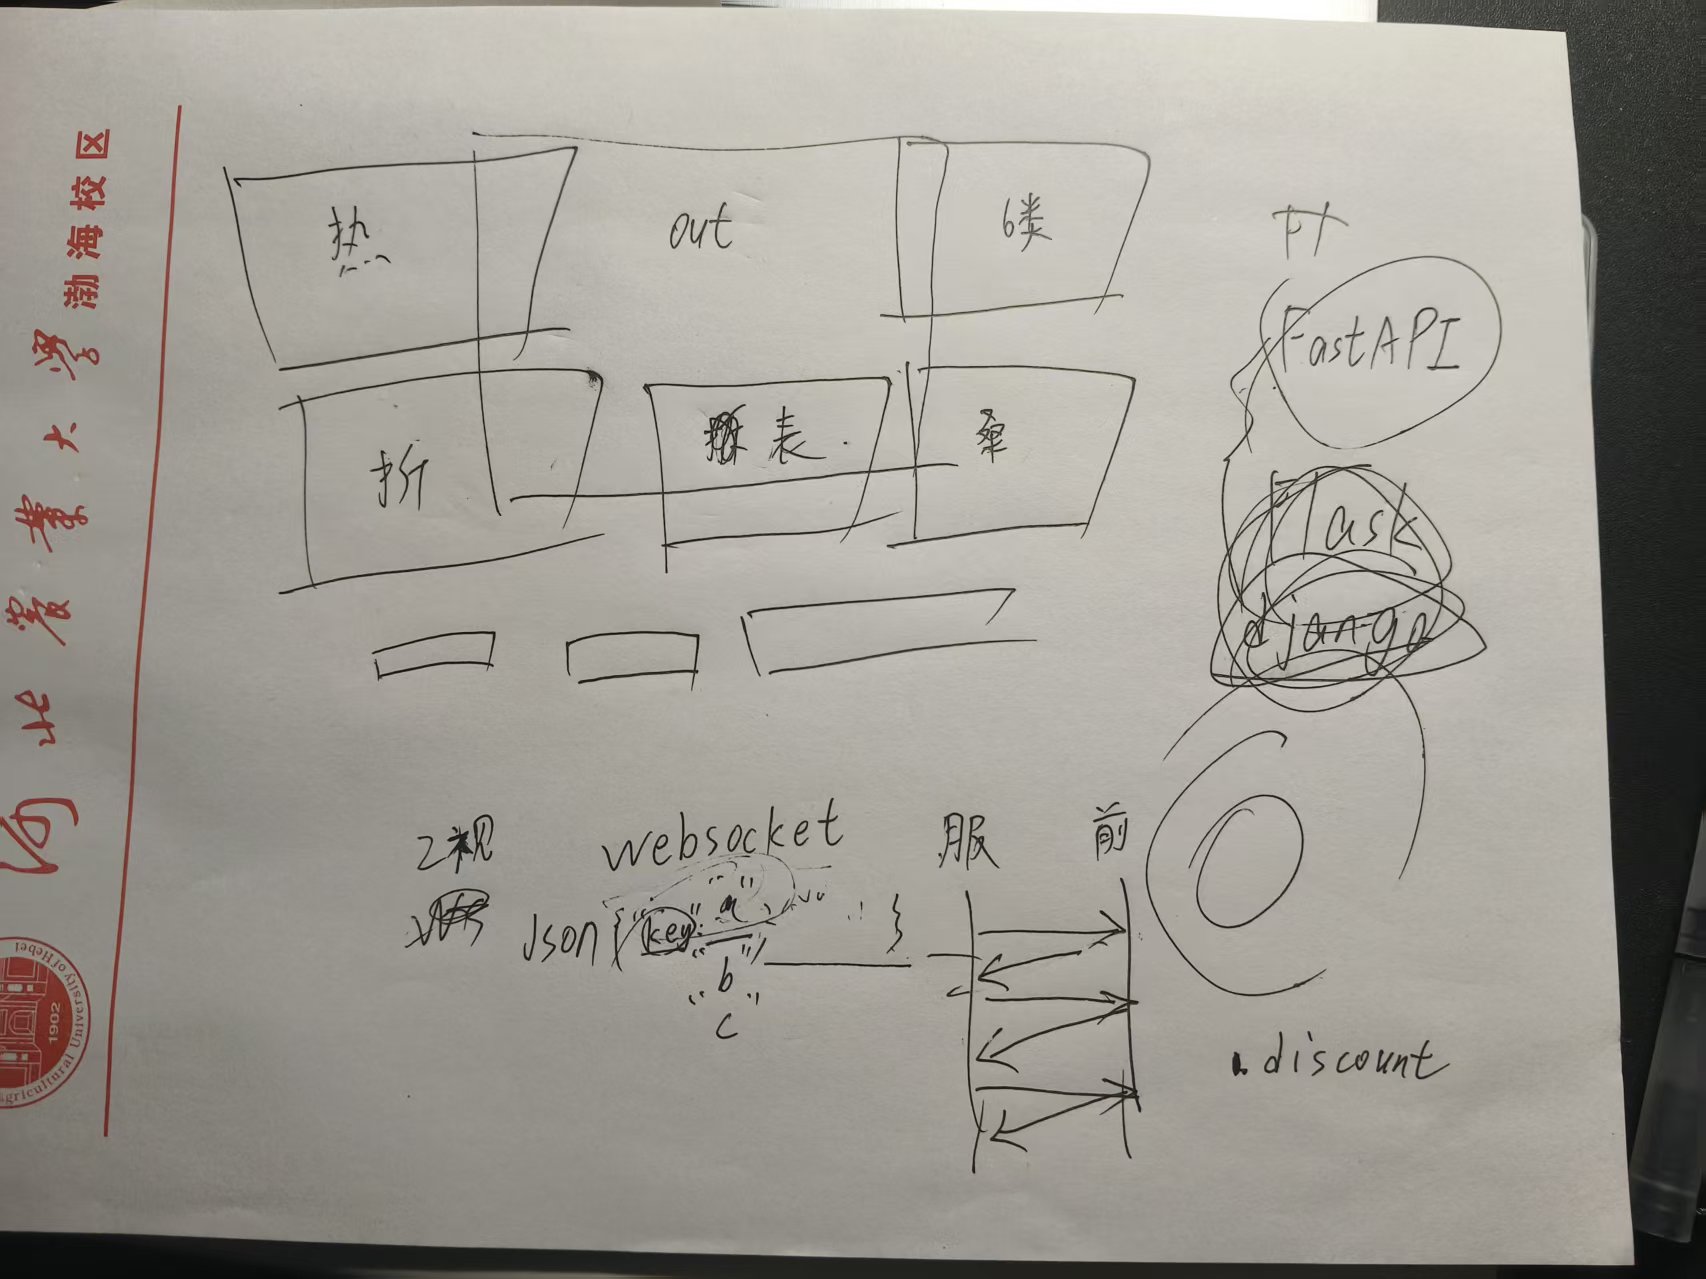 河北农业大学 渤海校区
1902
Agricultural University of Hebei
热 out 6类
折 表 桑
FastAPI
Flask
django
2视 websocket 服 前
Json { "key": "a" }
"b"
"c"
.discount